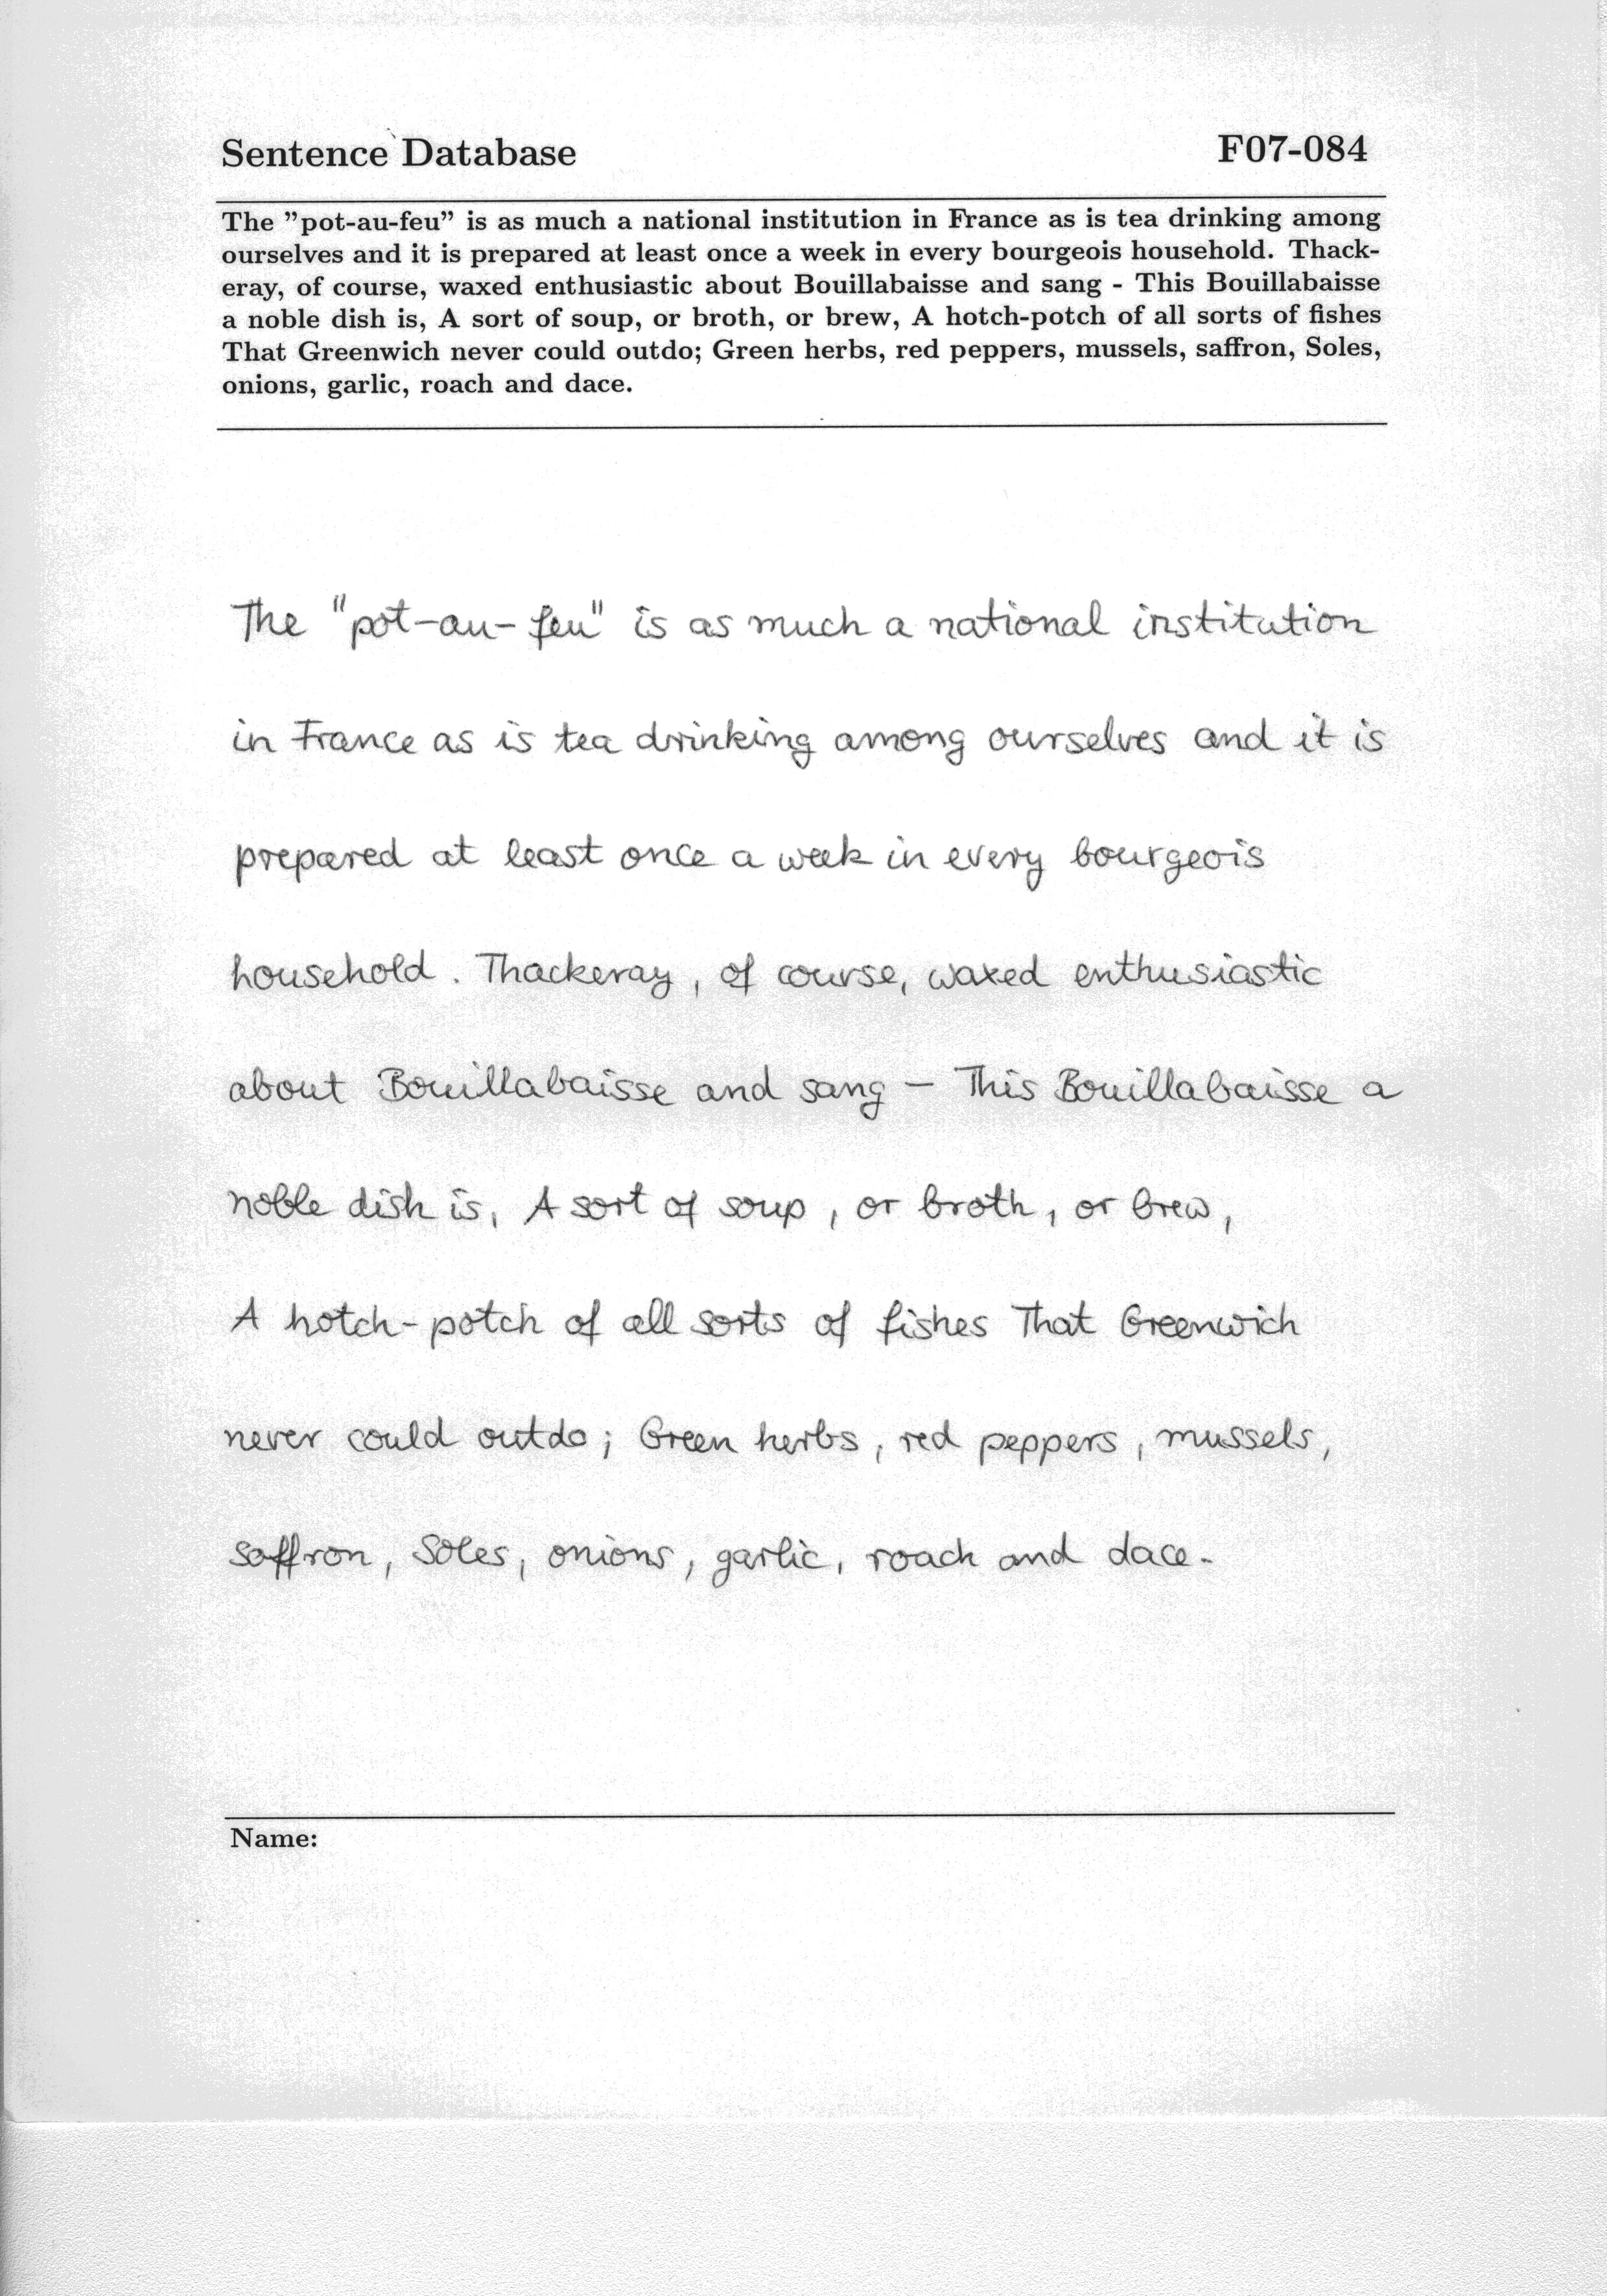 Sentence Database F07-084
The "pot-au-feu" is as much a national institution in France as is tea drinking among
ourselves and it is prepared at least once a week in every bourgeois household. Thack-
eray, of course, waxed enthusiastic about Bouillabaisse and sang - This Bouillabaisse
a noble dish is, A sort of soup, or broth, or brew, A hotch-potch of all sorts of fishes
That Greenwich never could outdo; Green herbs, red peppers, mussels, saffron, Soles,
onions, garlic, roach and dace.
The "pot-au-feu" is as much a national institution
in France as is tea drinking among ourselves and it is
prepared at least once a week in every bourgeois
household. Thackeray, of course, waxed enthusiastic
about Bouillabaisse and sang - This Bouillabaisse a
noble dish is, A sort of soup, or broth, or brew,
A hotch-potch of all sorts of fishes That Greenwich
never could outdo; Green herbs, red peppers, mussels,
saffron, Soles, onions, garlic, roach and dace.
Name: